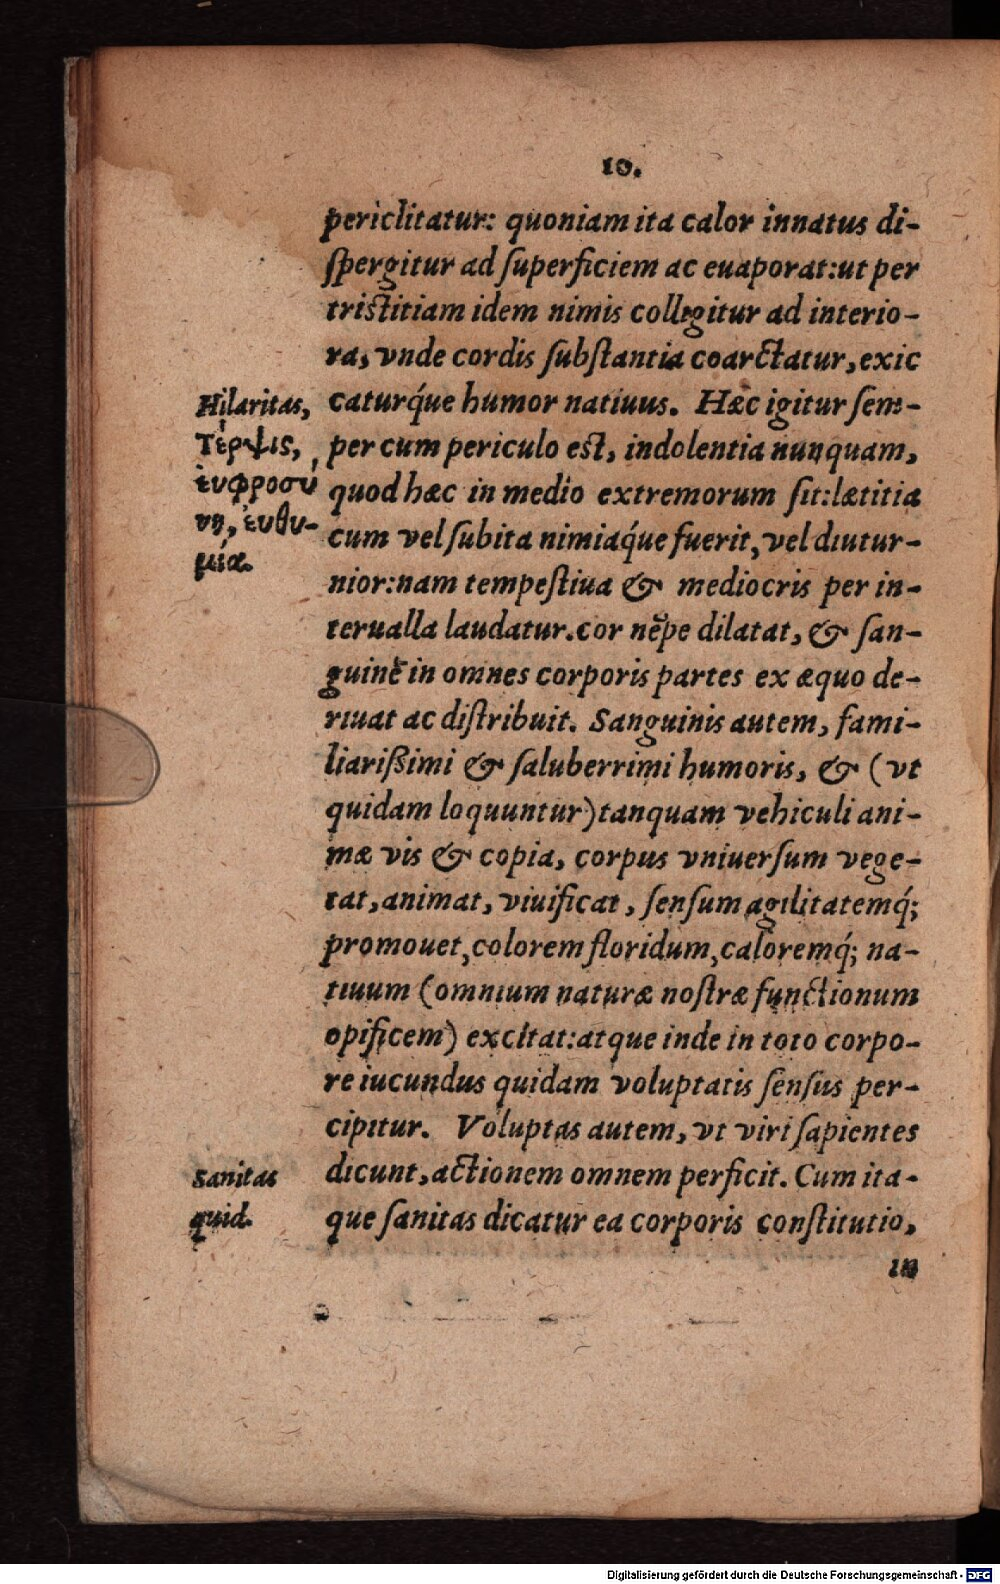 10.
periclitatur: quoniam ita calor innatus di-
ſpergitur ad ſuperficiem ac euaporat:ut per
triſtitiam idem nimis collegitur ad interio-
ra, vnde cordis ſubſtantia coarctatur, exic
caturq́ue humor natiuus. Hæc igitur ſem-
per cum periculo eſt, indolentia nunquam,
quod hæc in medio extremorum ſit:lætitia
cum vel ſubita nimiaq́ue fuerit, vel diutur-
nior:nam tempeſtiua & mediocris per in-
terualla laudatur.cor nẽpe dilatat, & ſan-
guinẽ in omnes corporis partes ex æquo de-
riuat ac diſtribuit. Sanguinis autem, fami-
liariſsimi & ſaluberrimi humoris, & (vt
quidam loquuntur)tanquam vehiculi ani-
mæ vis & copia, corpus vniuerſum vege-
tat, animat, viuificat, ſenſum agilitatemq́;
promouet, colorem floridum, caloremq́; na-
tiuum (omnium naturæ noſtræ functionum
opificem) excitat:atque inde in toto corpo-
re iucundus quidam voluptatis ſenſus per-
cipitur. Voluptas autem, vt viri ſapientes
dicunt, actionem omnem perficit. Cum ita-
que ſanitas dicatur ea corporis conſtitutio,
in
Hilaritas,
Τέρψις,
ἐυφροσύ
νη, ἐυθυ-
μία.
Sanitas
quid.
Digitalisierung gefördert durch die Deutsche Forschungsgemeinschaft - DFG